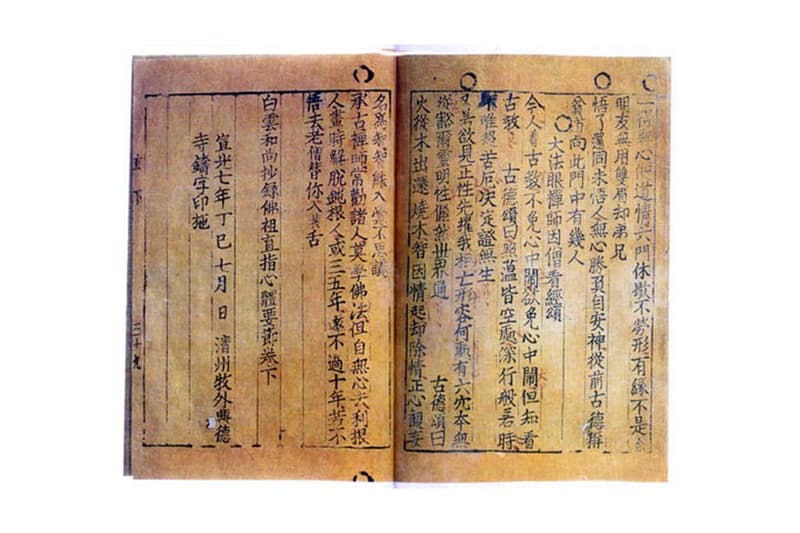 一得無心便道情六門休歇不勞形有緣不是
朋友無用雙眉却弟兄
悟了還同未悟人無心勝負自安神從前古德稱
貧道向此門中有幾人
大法眼禪師因僧看經頌
今人看古教不免心中鬧欲免心中鬧但知看
古教 古德頌曰照蘊皆空處深行般若時
唯超苦厄決定證無生
又若欲見正性先摧我相亡形容何處有六穴本無
豁爾靈明性儼然世界通 古德頌曰
火從木出還燒木智因情起却除情正心觀妄
名爲 知 入 不思議
承古禪師常勸諸人莫學佛法但自無心去利根
人畫時解脫鈍根人或三五年遠不過十年若不
悟去老僧替你入拔舌
白雲和尚抄錄佛祖直指心體要節卷下
宣光七年丁巳七月 日 清州牧外興德
寺鑄字印施
直下 三十九